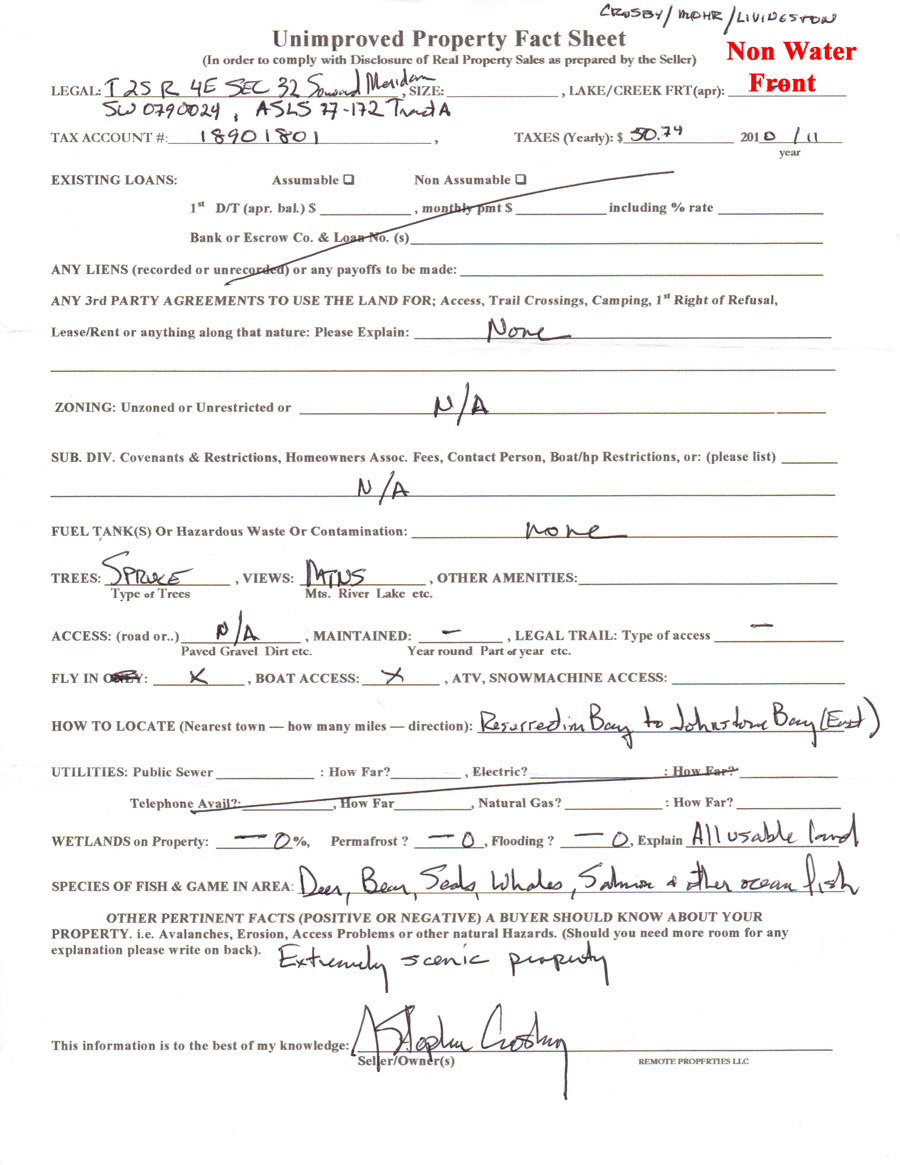 CROSBY/MOHR/LIVINGSTON
Unimproved Property Fact Sheet
(In order to comply with Disclosure of Real Property Sales as prepared by the Seller)
Non Water
Front
LEGAL: T 2S R 4E SEC 32 Seward Meridan, SIZE: , LAKE/CREEK FRT(apr): -
SW 0790024, ASLS 77-172 Tract A
TAX ACCOUNT #: 18901801, TAXES (Yearly): $ 50.74 2010/11
year
EXISTING LOANS: Assumable ❑ Non Assumable ❑
1st D/T (apr. bal.) $ , monthly pmt $ including % rate
Bank or Escrow Co. & Loan No. (s)
ANY LIENS (recorded or unrecorded) or any payoffs to be made:
ANY 3rd PARTY AGREEMENTS TO USE THE LAND FOR; Access, Trail Crossings, Camping, 1st Right of Refusal,
Lease/Rent or anything along that nature: Please Explain: None
ZONING: Unzoned or Unrestricted or N/A
SUB. DIV. Covenants & Restrictions, Homeowners Assoc. Fees, Contact Person, Boat/hp Restrictions, or: (please list)
N/A
FUEL TANK(S) Or Hazardous Waste Or Contamination: none
TREES: SPRUCE, VIEWS: MTNS, OTHER AMENITIES:
Type of Trees Mts. River Lake etc.
ACCESS: (road or..) N/A, MAINTAINED: -, LEGAL TRAIL: Type of access -
Paved Gravel Dirt etc. Year round Part of year etc.
FLY IN ONLY: X, BOAT ACCESS: X, ATV, SNOWMACHINE ACCESS:
HOW TO LOCATE (Nearest town — how many miles — direction): Resurredtion Bay to Johnstone Bay (East)
UTILITIES: Public Sewer : How Far? , Electric? : How Far?
Telephone Avail?: , How Far , Natural Gas? : How Far?
WETLANDS on Property: - 0 %, Permafrost ? - 0, Flooding ? - 0, Explain All usable land
SPECIES OF FISH & GAME IN AREA: Deer, Bear, Seals, Whales, Salmon & other ocean fish
OTHER PERTINENT FACTS (POSITIVE OR NEGATIVE) A BUYER SHOULD KNOW ABOUT YOUR
PROPERTY. i.e. Avalanches, Erosion, Access Problems or other natural Hazards. (Should you need more room for any
explanation please write on back). Extremely scenic property
This information is to the best of my knowledge: Stephen Crosby
Seller/Owner(s) REMOTE PROPERTIES LLC